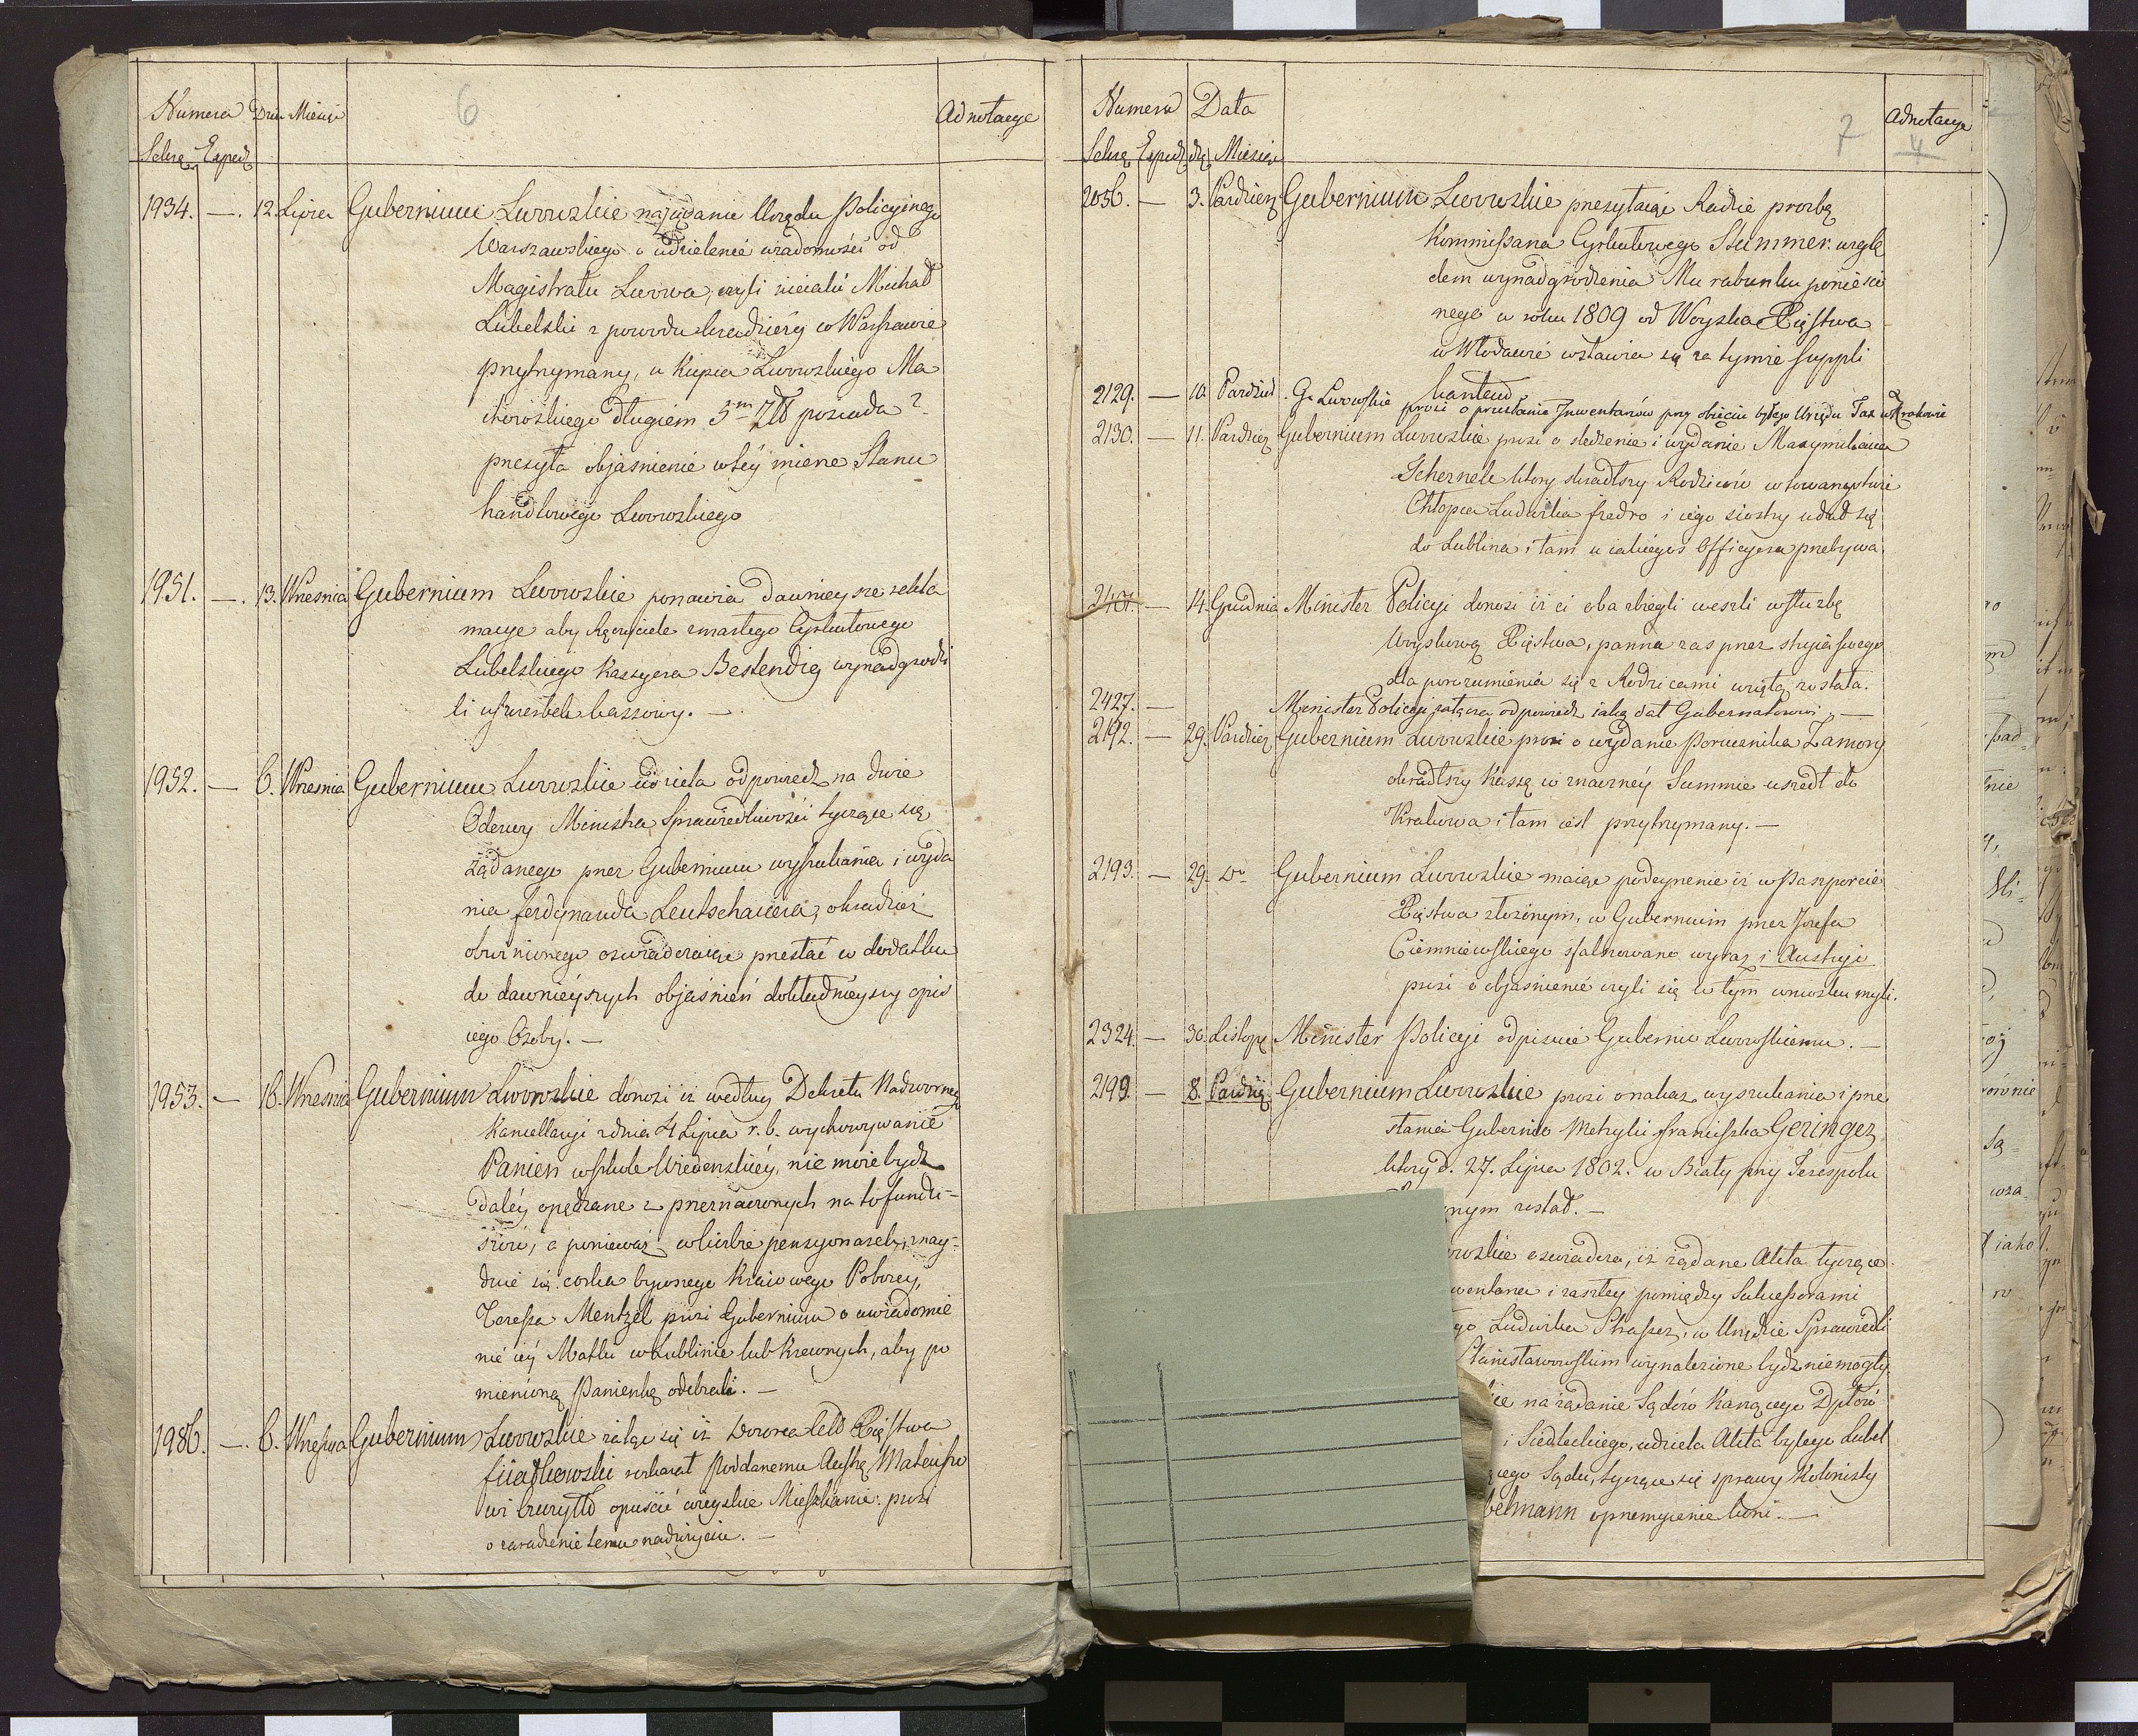 6
Numera Dzień Miesiąc Adnotacye
Sekrę. Exped.
1934. —. 12. Lipca Gubernium Lwowskie na żądanie Urzędu Policyinego
Warszawskiego o udzielenie wiadomości od
Magistratu Lwowa, czyli nieiaki Michał
Lubelski z powodu kradzieży w Warszawie
przytrzymany, u Kupca Lwowskiego Ma
długiem 5m Złł posiada?
przesyła objaśnienie w tey mierze Stanu
handlowego Lwowskiego
1951. —. 13. Wrzesnia Gubernium Lwowskie ponawia dawnieysze rekla
macye aby Ręczyciele zmarłego Cyrkułowego
Lubelskiego Kassyera Bestendig wynadgrodzi
li uszczerbek kassowy. —
1952. — 6. Wrzesnia Gubernium Lwowskie udziela odpowiedź na dwie
Odezwy Ministra Sprawiedliwości tyczące się
żądanego przez Gubernium wyszukania i wyda
nia Ferdynanda Leutschauera, o kradzież
obwinionego oświadczaiąc przesłać w dodatku
do dawnieyszych objaśnień dokładnieyszy opis
iego Osoby. —
1953. — 16. Wrzesnia Gubernium Lwowskie donosi iż według Dekretu Nadwornego
Kancellaryi z dnia 4 Lipca r. b. wychowywanie
Panien w szkole Wiedeńskiey, nie może bydź
daléy opędzane z przeznaczonych na to fundu-
szów, a ponieważ w liczbie pensyonarek, znay-
duie się corka bywszego Kraiowego Poborcy,
Teressa Mentzel prosi Gubernium o uwiadomie
nie iéy Matki w Lublinie lub Krewnych, aby po
mienioną Panienkę odebrali. —
1986. —. 6. Wrzesnia Gubernium Lwowskie żaląc się iż Dozorca Ceł Xięstwa
Fiiałkowski rozkazał Poddanemu Austrę. Mateuszo
wi opuścić wieyskie Mieszkanie: prosi
o zaradzenie temu nadużyciu. —
7
Numera Data Adnotacye
4
Sekrę. Exped. dzę. Miesiąc
2056. — 3. Pazdzier. Gubernium Lwowskie przesyłaiąc Radzie prozbę
Kommissarza Cyrkułowego Stummer wzglę
dem wynadgrodzenia Mu rabunku poniesio
nego w roku 1809 od Woyska Xięstwa
w Włodawie wstawia się za tymże Suppli
kantem
2129. — 10. Pazdzier. G. Lwowskie prosi o przesłanie Inwentarzów przy obięciu byłego Urzędu Tax w Krakowie
2130. — 11. Pazdzier. Gubernium Lwowskie prosi o śledzenie i wydanie Maxymiliana
Schernele który skradłszy Rodziców w towarzystwie
Chłopca Ludwika Fredro i iego siostry udał się
do Lublina i tam u iakiegoś Officyera przebywa.
2401. — 14. Grudnia Minister Policyi donosi iż ci oba zbiegli weszli w służbę
woyskową Xięstwa, panna zas przez stryia swego
dla porozumienia się z Rodzicami wziętą została.
2427. — Minister Policyi załącza odpowiedź iaką dał Gubernatorowi. —
2192. — 29. Pazdzier. Gubernium Lwowskie prosi o wydanie Porucznika Zamory
okradłszy Kassę w znaczney Summie uszedł do
Krakowa i tam iest przytrzymany. —
2193. — 29. do Gubernium Lwowskie maiąc podeyrzenie iż w Paszporcie
Xięstwa złożonym, w Gubernium przez Jozefa
Ciemniewskiego sfałszowano wyraz i Austryi
prosi o objaśnienie czyli się w tym wniosku myli.
2324. — 30. Listopę. Minister Policyi odpisuie Gubernio Lwowskiemu. —
2199. — 8. Pazdzię. Gubernium Lwowskie prosi o nakaz wyszukania i prze
słania Gubernio Metryki Franciszka Geringer
który d. 27. Lipca 1802. w Biały przy Terespolu
nym został. —
wskie oświadcza, iż żądane Akta tyczące
wentarza i zaszłey pomiędzy Sukcessorami
go Ludwika Strasser, w Urzędzie Sprawiedli
Stanisławowskim wynalezione bydź niemogły
ie na żądanie Sądów Karzącego Dptów
i Siedleckiego, udziela Akta byłego Lubel
ego Sądu, tyczące się sprawy Kolonisty
belmann o przemycenie koni. —